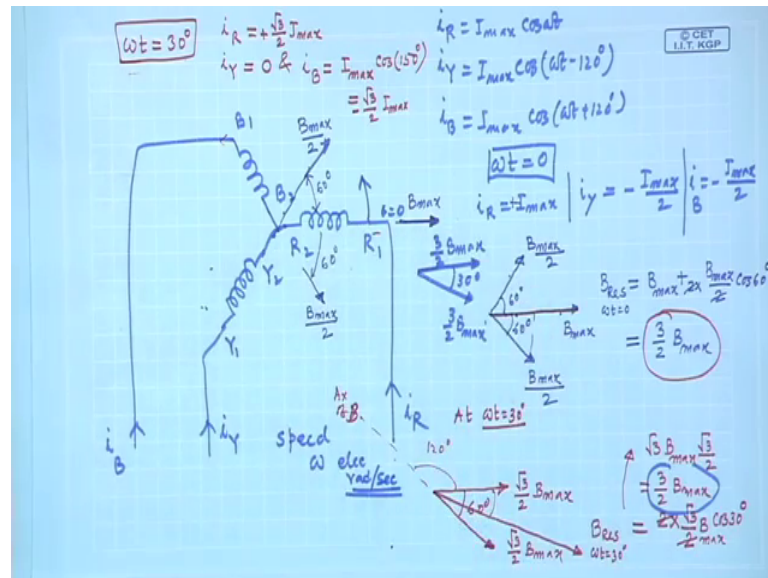 ωt = 30°
i_R = +√3/2 I_max
i_Y = 0 & i_B = I_max cos(150°)
= -√3/2 I_max
i_R = I_max cos ωt
i_Y = I_max cos(ωt - 120°)
i_B = I_max cos(ωt + 120°)
© CET
I.I.T. KGP
ωt = 0
i_R = +I_max | i_Y = - I_max/2 | i_B = - I_max/2
B1
B_max/2
B2
60°
θ=0
B_max
R2
R1
60°
Y2
B_max/2
Y1
3/2 B_max
30°
3/2 B_max
B_max/2
60°
B_max
60°
B_max/2
B_RES ωt=0 = B_max + 2x B_max/2 cos60°
= 3/2 B_max
i_B
i_Y
i_R
Ax
of B
speed
ω elec
rad/sec
At ωt=30°
120°
√3/2 B_max
60°
√3/2 B_max
√3 B_max √3/2
= 3/2 B_max
B_RES ωt=30° = 2x √3/2 B_max cos30°